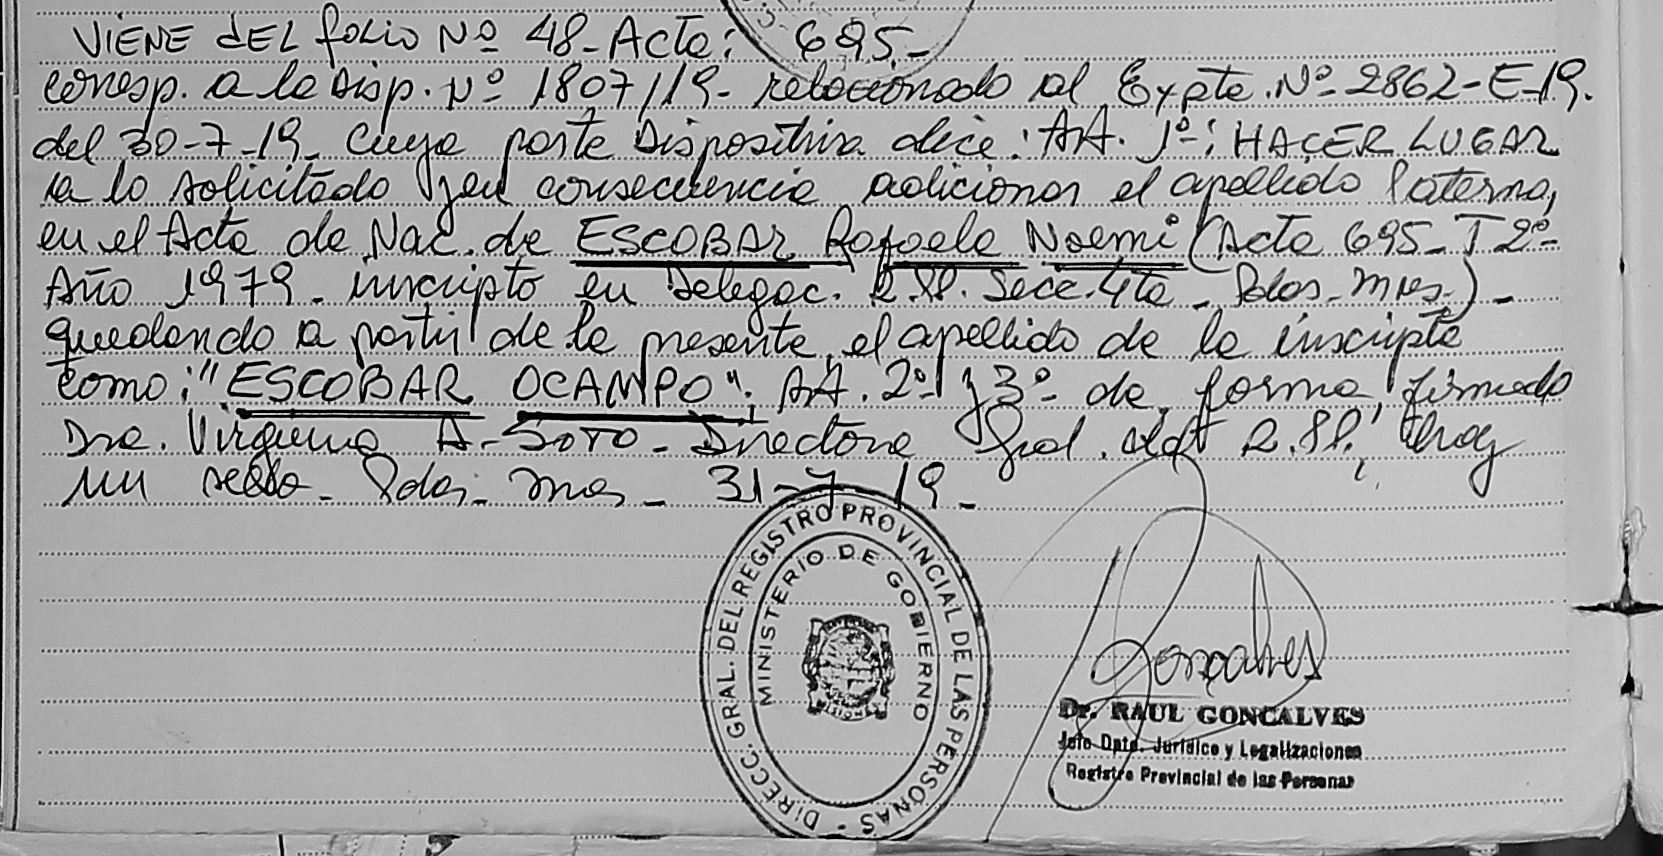 VIENE dEL folio Nº 48-Acta: 695.-
corresp. a la Disp. Nº 1807/19- relacionado al Expte. Nº 2862-E-19.
del 30-7-19- cuya parte Dispositiva dice: AA. 1º: HACER LUGAR
a lo solicitado y en consecuencia adicionar el apellido Paterno,
en el Acta de Nac. de ESCOBAR Rafaela Noemi (Acta 695- T 2º-
Año 1979- inscripto en Delegac. R.PP. Secc. 4ta - Pdas- Mnes-) -
quedando a partir de la presente, el apellido de la inscripta
como: "ESCOBAR OCAMPO". AA. 2º y 3º de forma, firmado
Dra. Virginia A. SOTO- Directora Gral. del R.PP. hay
un sello- Pdas- Mnes- 31-7-19-
DIRECC. GRAL. DEL REGISTRO PROVINCIAL DE LAS PERSONAS -
MINISTERIO DE GOBIERNO
MISIONES
Goncalves
Dr. RAUL GONCALVES
Jefe Dpto. Jurídico y Legalizaciones
Registro Provincial de las Personas